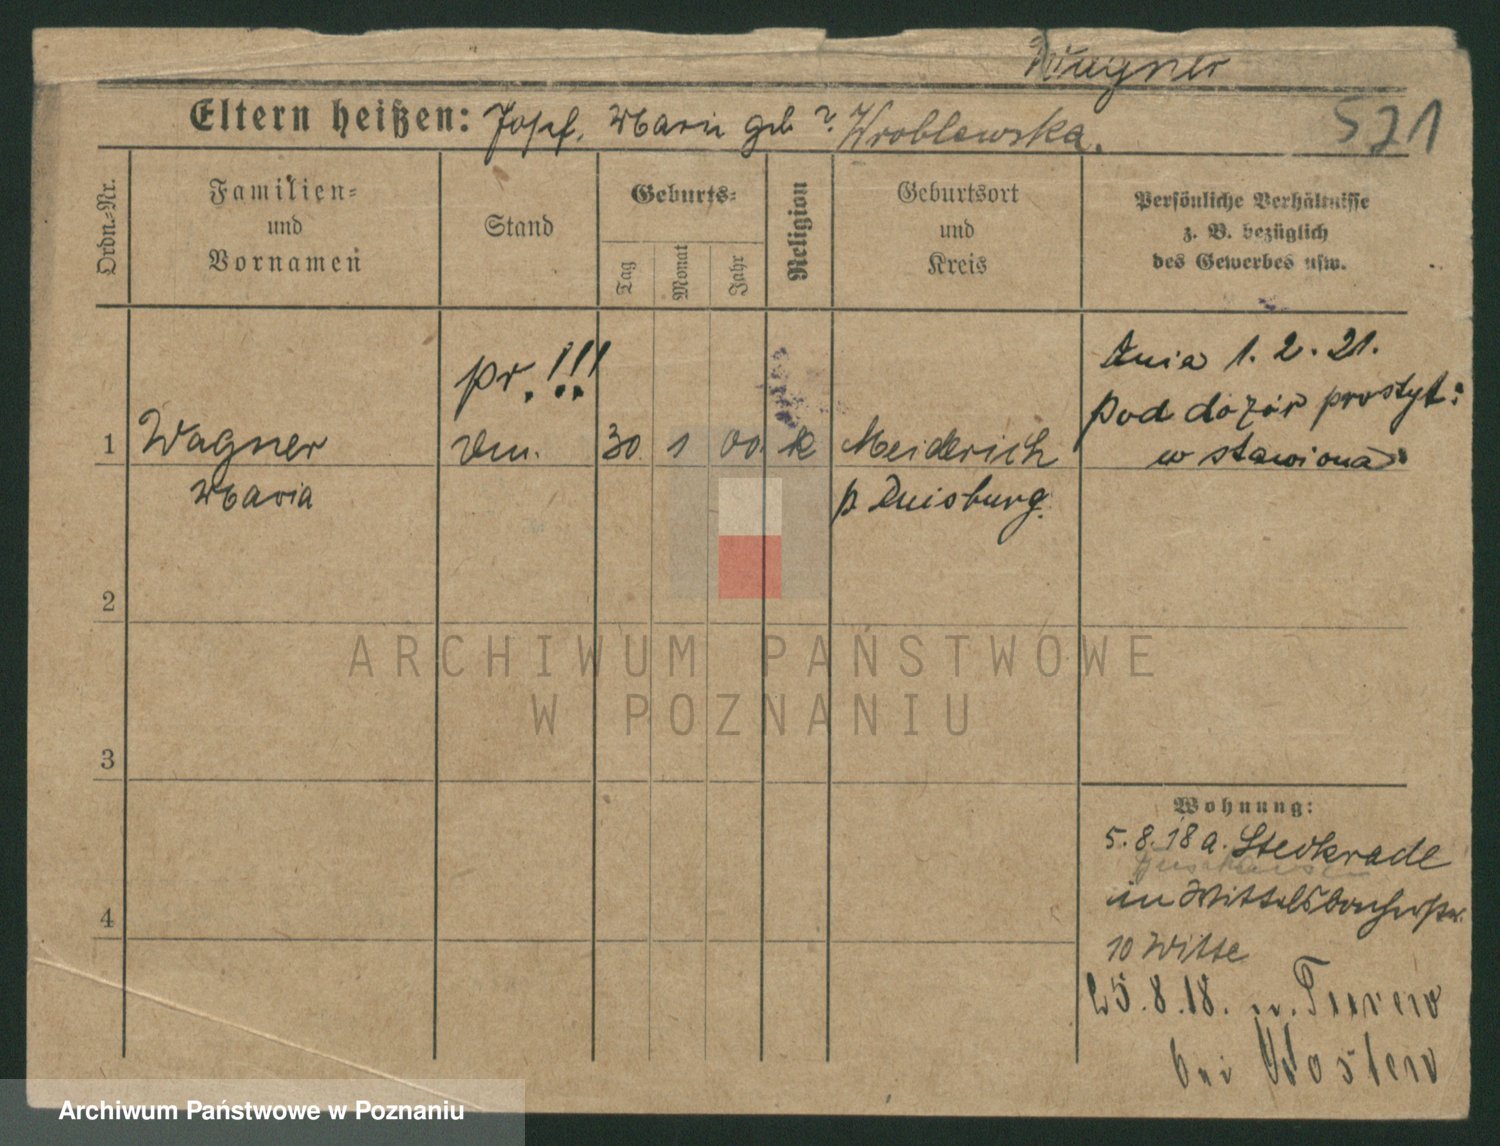 Wagner
Eltern heißen: Josef, Marie geb ? Wroblewska.
571
Ordn.-Nr.
Familien-
und
Vornamen
Stand
Geburts-
Tag
Monat
Jahr
Religion
Geburtsort
und
Kreis
Persönliche Verhältnisse
z. B. bezüglich
des Gewerbes usw.
pr. !!!
1 Wagner
Maria
30 1 00. k Meiderich
p Duisburg.
Dnia 1. 2. 21.
pod dozór prostyt:
wstawiona
2
3
4
Wohnung:
5.8.18 a. Sterkrade
in Wittelsbacherstr.
10 Witte
25.8.18. n.
bei
ARCHIWUM PAŃSTWOWE
W POZNANIU
Archiwum Państwowe w Poznaniu